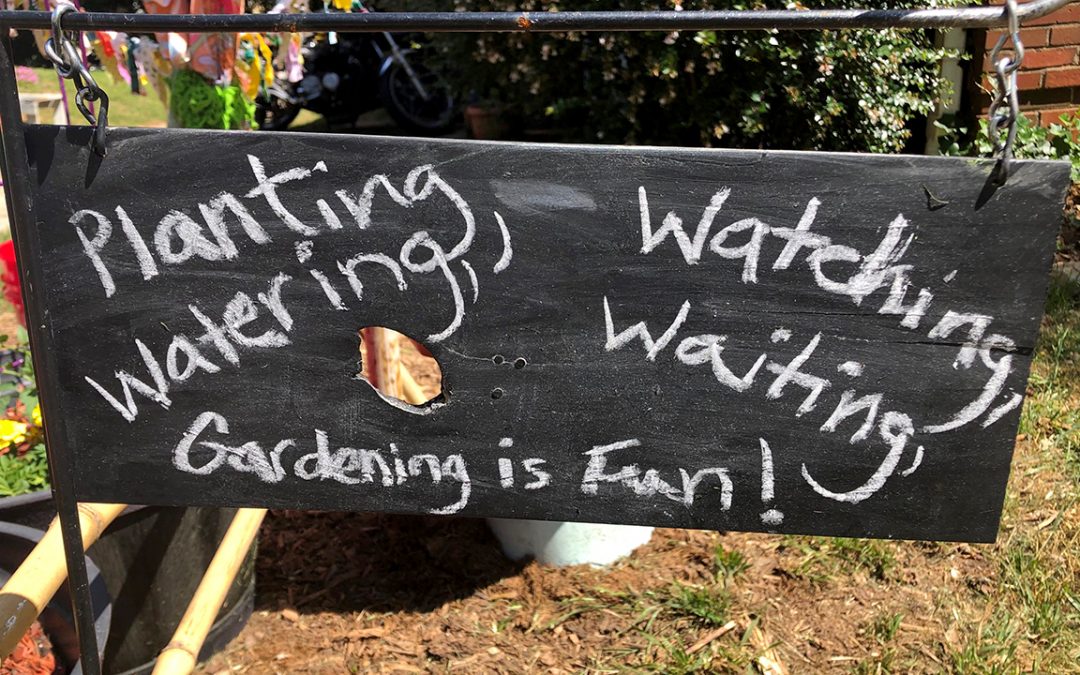 Planting,
Watering,
Watching,
Waiting,
Gardening is Fun!